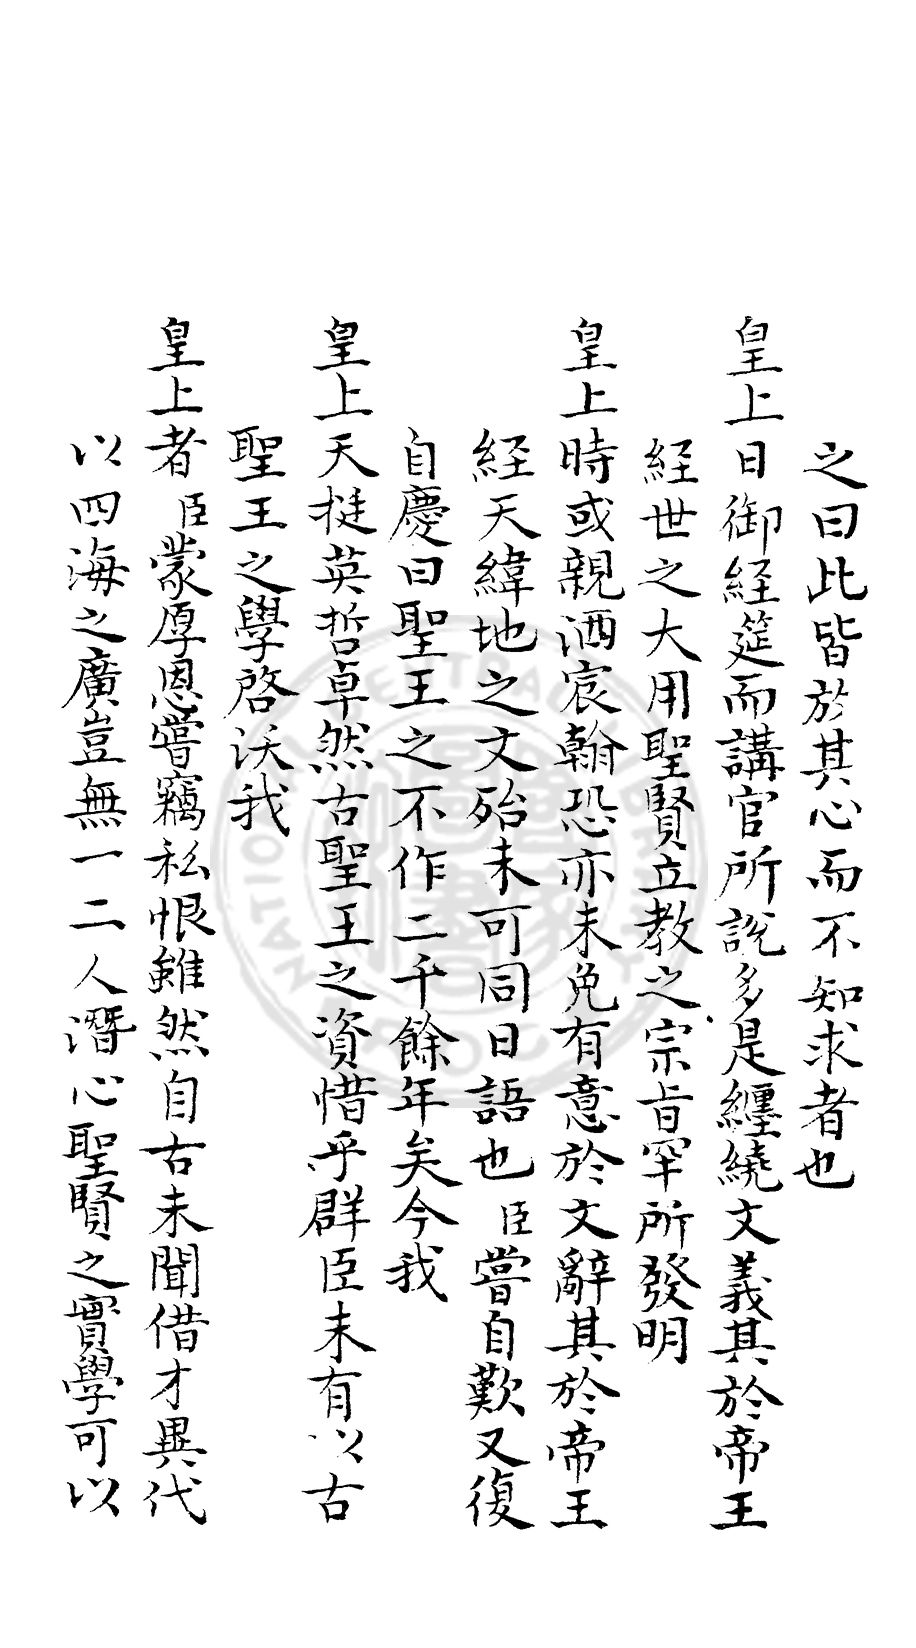 之曰此皆於其心而不知求者也
皇上日御経筵而講官所說多是纏繞文義其於帝王
経世之大用聖賢立教之宗旨罕所發明
皇上時或親洒宸翰恐亦未免有意於文辭其於帝王
経天緯地之文殆未可同日語也臣嘗自歎又復
自慶曰聖王之不作二千餘年矣今我
皇上天挺英哲卓然古聖王之資惜乎群臣未有以古
聖王之學啓沃我
皇上者臣蒙厚恩嘗竊私恨雖然自古未聞借才異代
以四海之廣豈無一二人潛心聖賢之實學可以